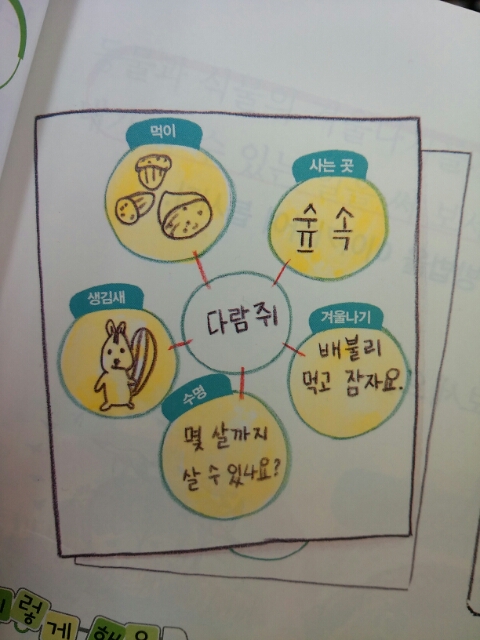 먹이
사는 곳
숲 속
생김새
다람쥐
겨울나기
배불리
먹고 잠자요.
수명
몇 살까지
살 수 있나요?
렇게 해요